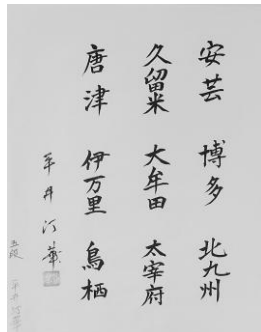 安芸 博多 北九州
久留米 大牟田 太宰府
唐津 伊万里 鳥栖
平井
五段
平井